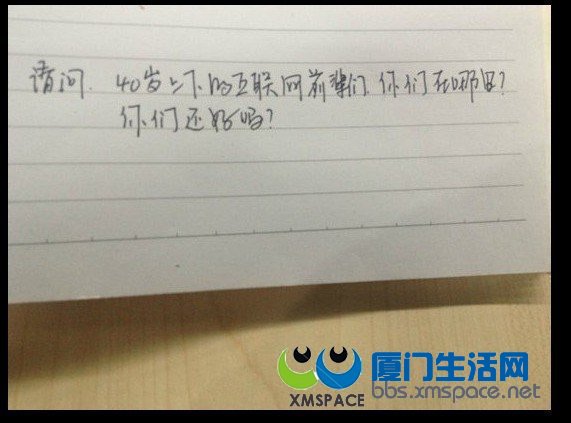 请问. 40岁上下的互联网前辈们 你们在哪里?
你们还好吗?
XMSPACE
厦门生活网
bbs.xmspace.net